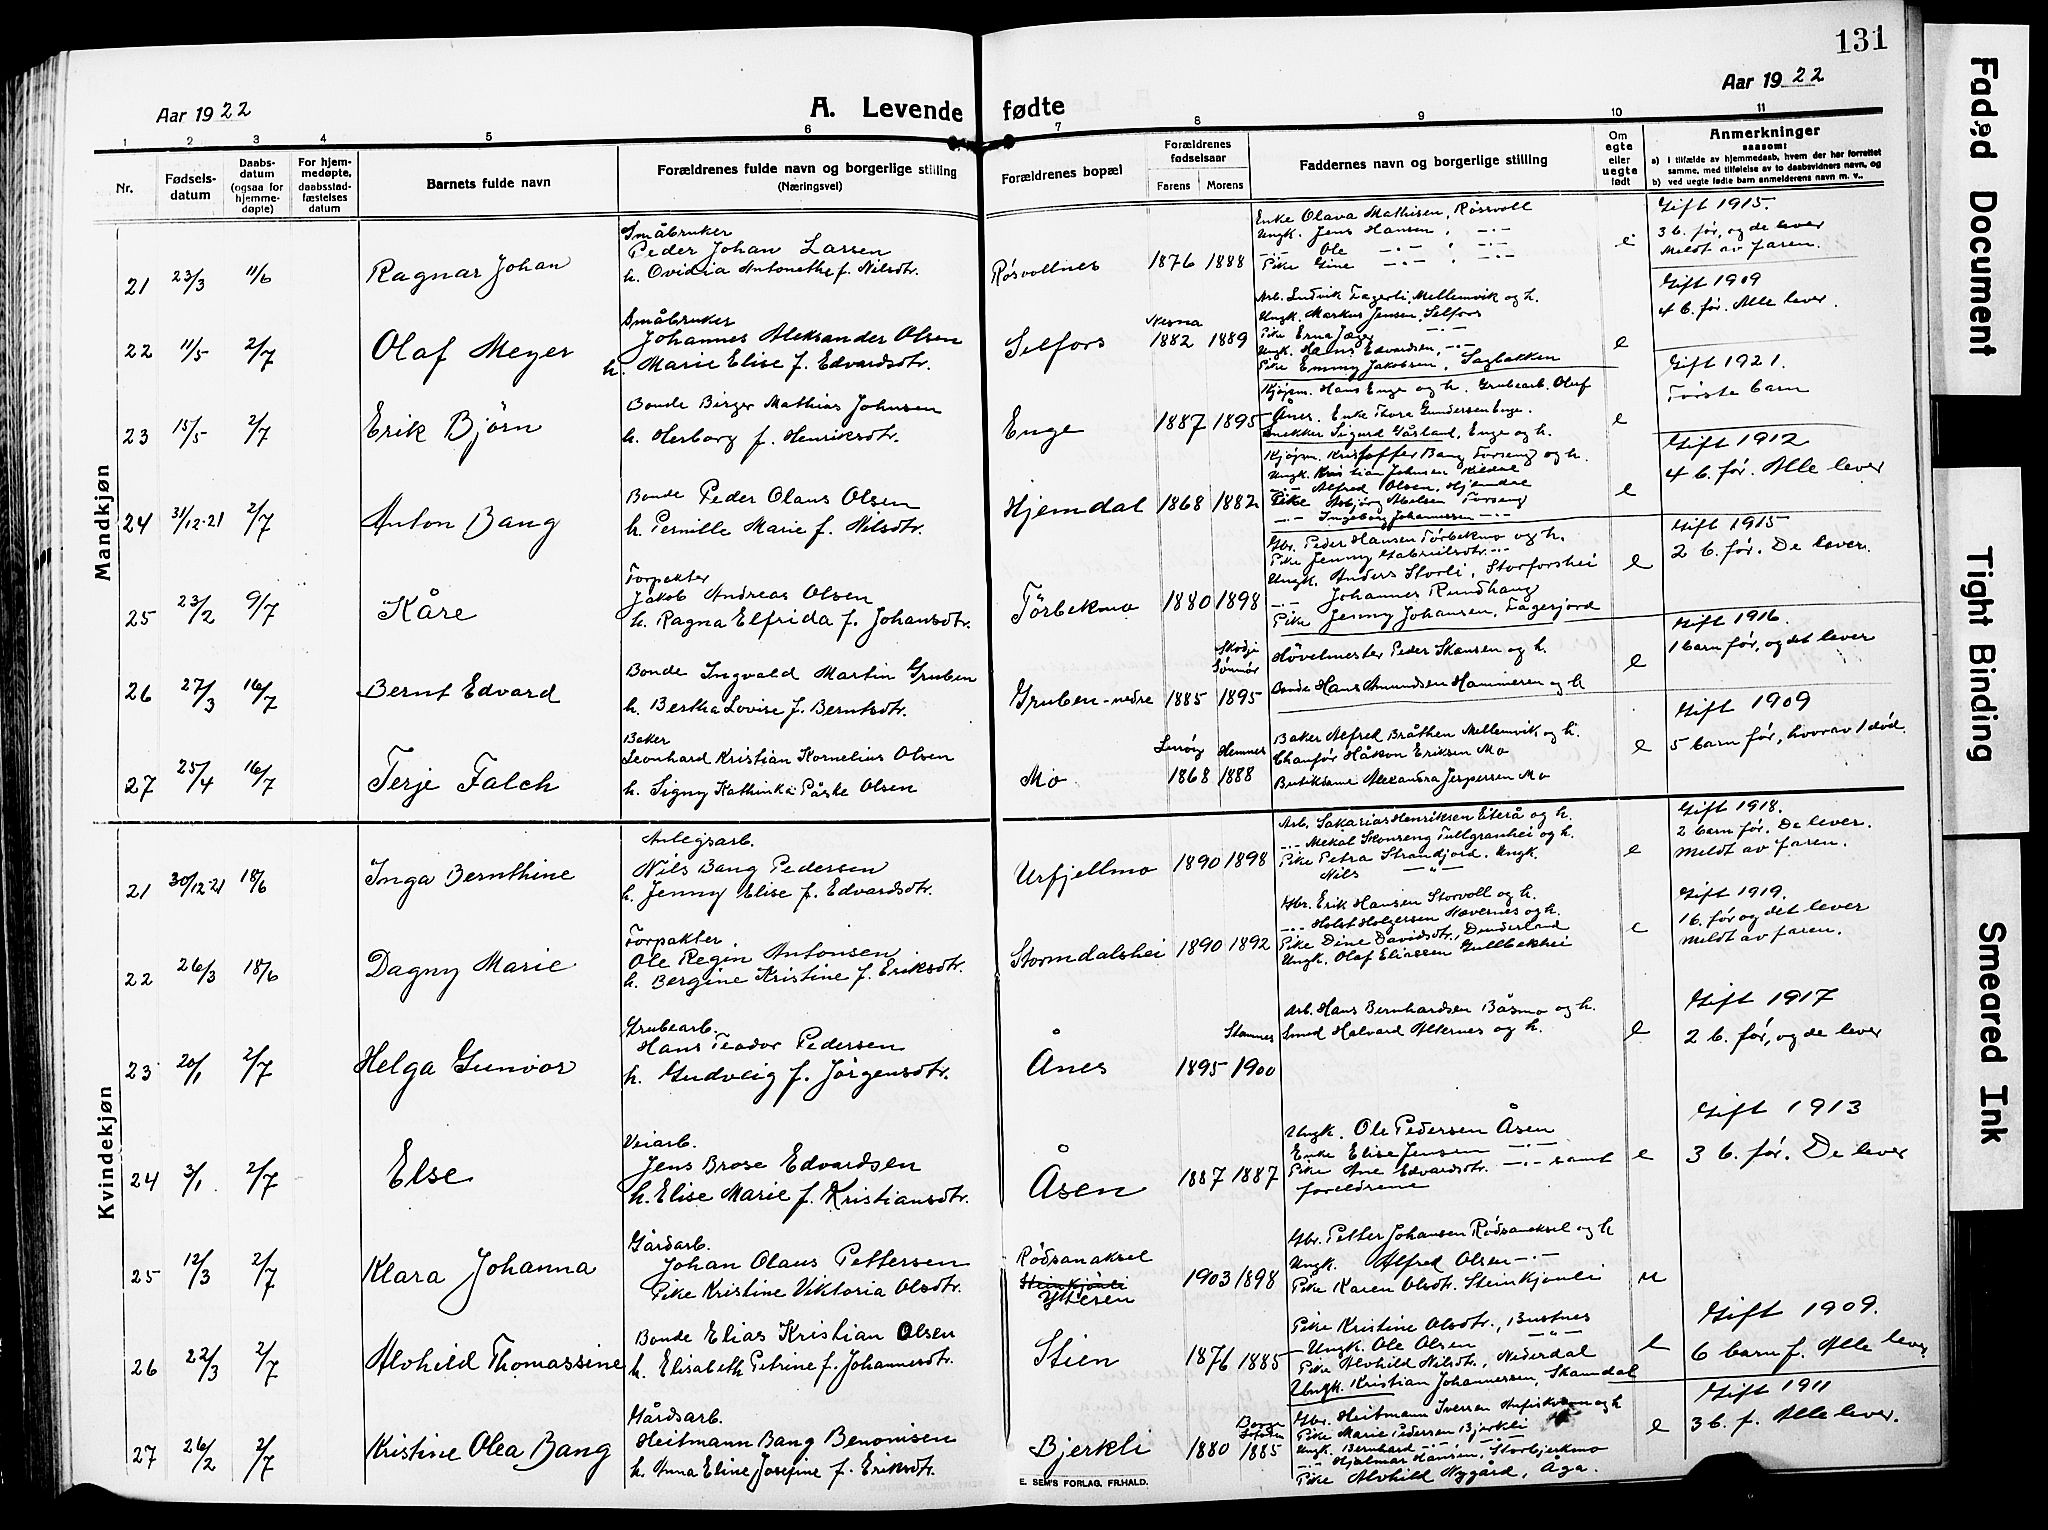 131
Aar 1922
A. Levende fødte
Aar 1922
1 2 3 4 5 6 7 8 9 10 11
Nr.
Fødsels-
datum
Daabs-
datum
(ogsaa for
hjemme-
døpte)
For hjem-
medøpte,
daabsstad-
fæstelses
datum
Barnets fulde navn
Forældrenes fulde navn og borgerlige stilling
(Næringsvei)
Forældrenes bopæl
Forældrenes
fødselsaar
Farens. Morens
Faddernes navn og borgerlige stilling
Om
egte
eller
uegte
født
Anmerkninger
saasom:
a) i tilfælde av hjemmedaab, hvem der har forrettet
samme, med tilføielse av to daabsvidners navn, og
b) ved uegte fødte barn anmelderens navn m. v.
Mandkjøn
21 23/3 11/6 Ragnar Johan
Småbruker
Peder Johan Larsen
h. Ovidia Antonethe f. Nilsdtr.
Røsvollnes 1876 1888
Enke Olava Mathisen, Røssvoll
Ungk. Jens Hansen, -·-
-·- Ole -·- -·-
Pike Gine -·- -·-
e
Gift 1915.
3 b. før, og de lever
Meldt av faren.
22 11/5 2/7 Olaf Meyer
Småbruker
Johannes Aleksander Olsen
h. Marie Elise f. Edvardsdtr.
Selfors Nesna 1882 1889
Arb. Ludvik Fagerli, Mellemvik og h.
Ungk. Markus Jensen, Selfors
Pike Erna Jæger -·-
Ungk. Hans Edvardsen, -·-
Pike Emmy Jakobsen, Sagbakken
e
Gift 1909
4 b. før. Alle lever.
23 15/5 2/7 Erik Bjørn
Bonde Birger Mathias Johnsen
h. Herborg f. Henriksdtr.
Enge 1887 1895
Kjøpm. Hans Enge og h. Grubearb. Oluf
Ånes. Enke Thora Gundersen Enge.
Snekker Sigurd Gåsland, Enge og h.
e
Gift 1921.
Første barn
24 31/12-21 2/7 Anton Bang
Bonde Peder Olaus Olsen
h. Pernille Marie f. Nilsdtr.
Hjemdal 1868 1882
Kjøpm. Kristoffer Bang Forseng og h.
Ungk. Kristian Johnsen Kildal
-·- Alfred Olsen, Hjemdal
Pike Asbjørg Abelsen Forseng
-·- Ingeborg Johannessen -·-
e
Gift 1912
4 b. før. Alle lever
25 23/2 9/7 Kåre
Forpakter
Jakob Andreas Olsen
h. Ragna Elfrida f. Johansdtr.
Tørbekmo 1880 1898
Gbr. Peder Hansen Tørbekmo og h.
Pike Jenny Gabrielsdtr. -·-
Ungk. Anders Storli, Storforshei
-·- Johannes Rundhaug
Pike Jenny Johansen, Fagerjord
e
Gift 1915
2 b. før. De lever.
26 27/3 16/7 Bernt Edvard
Bonde Ingvald Martin Gruben
h. Bertha Lovise f. Berntsdtr.
Gruben-nedre 1885 Skodje Sønmør 1895
Høvelmester Peder Skansen og h.
Bonde Hans Amundsen Hammeren og h
e
Gift 1916
1 barn før, og det lever
27 25/4 16/7 Terje Falch
Baker
Leonhard Kristian Kornelius Olsen
h. Signy Kathinka Påske Olsen
Mo 1868 Hemnes 1888
Baker Alfred Bråthen Mellemvik og h.
Chaufør Håkon Eriksen Mo
Butikdame Alexandra Jespersen Mo
e
Gift 1909
5 barn før, hvorav 1 død.
Kvindekjøn
21 30/12-21 18/6 Inga Bernthine
Anlegsarb.
Nils Bang Pedersen
h. Jenny Elise f. Edvardsdtr.
Urfjellmo 1890 1898
Arb. Sakarias Henriksen Eiterå og h.
-·- Mekal Skonseng Tullgranhei og h.
Pike Petra Strandjord. Ungk.
Nils -"-
e
Gift 1918.
2 barn før. De lever.
Meldt av faren.
22 26/3 18/6 Dagny Marie
Forpakter.
Ole Regin Antonsen
h. Bergine Kristine f. Eriksdtr.
Stormdalshei 1890 1892
Gbr. Erik Hansen Storvoll og h.
-·- Holst Holgersen Nævernes og h.
Pike Dine Davidsdtr., Dunderland
Ungk. Olaf Eliassen Gullbekhei
e
Gift 1919.
1 b. før og det lever
Meldt av faren.
23 20/1 2/7 Helga Gunvor
Grubearb.
Hans Teodor Pedersen
h. Gudveig f. Jørgensdtr.
Ånes 1895 Stamnes 1900
Arb. Hans Bernhardsen Båsmo og h.
Smed Halvard Alternes og h.
e
Gift 1917
2 b. før, og de lever
24 3/1. 2/7 Else
Veiarb.
Jens Brose Edvardsen
h. Elise Marie f. Kristiansdtr.
Åsen 1887 1887
Ungk. Ole Pedersen Åsen
Enke Elise Jensen -·-
Pike Ane Edvardsdtr. -·- samt
foreldrene
e
Gift 1913
3 b. før. De lever
25 12/3 2/7 Klara Johanna
Gårdarb.
Johan Olaus Pettersen
Pike Kristine Viktoria Olsdtr.
Rødsanaksel
Steinkjønli
Ytteren
1903 1898
Gbr. Petter Johansen Rødsanaksel og h
Ungk. Alfred Olsen -·-
Pike Karen Olsdtr. Steinkjønli
u
26 22/3 2/7 Alvhild Thomassine
Bonde Elias Kristian Olsen
h. Elisabeth Petrine f. Johannesdtr.
Stien 1876 1885
Pike Kristine Olsdtr., Bustnes
Ungk. Ole Olsen -"-
Pike Alvhild Nilsdtr., Nederdal
Ungk. Kristian Johannessen, Skamdal
e
Gift 1909.
6 barn f. Alle lever
27 26/2 2/7 Kristine Olea Bang
Gårdsarb.
Heitmann Bang Benonisen
h. Anna Eline Josefine f. Eriksdtr.
Bjerkli 1880 Borge Lofoten 1885
Gbr. Heitmann Iversen og h
Pike Marie Pedersen Bjerkli
Ungk. Bernhard -·- -·-
-·- Hjalmar Hansen, Storbjerkmo
Pike Alvhild Nygård, Åga.
e
Gift 1911
3 b. f. Alle lever.
E. SEM'S FORLAG, FR.HALD.
Faded Document
Tight Binding
Smeared Ink